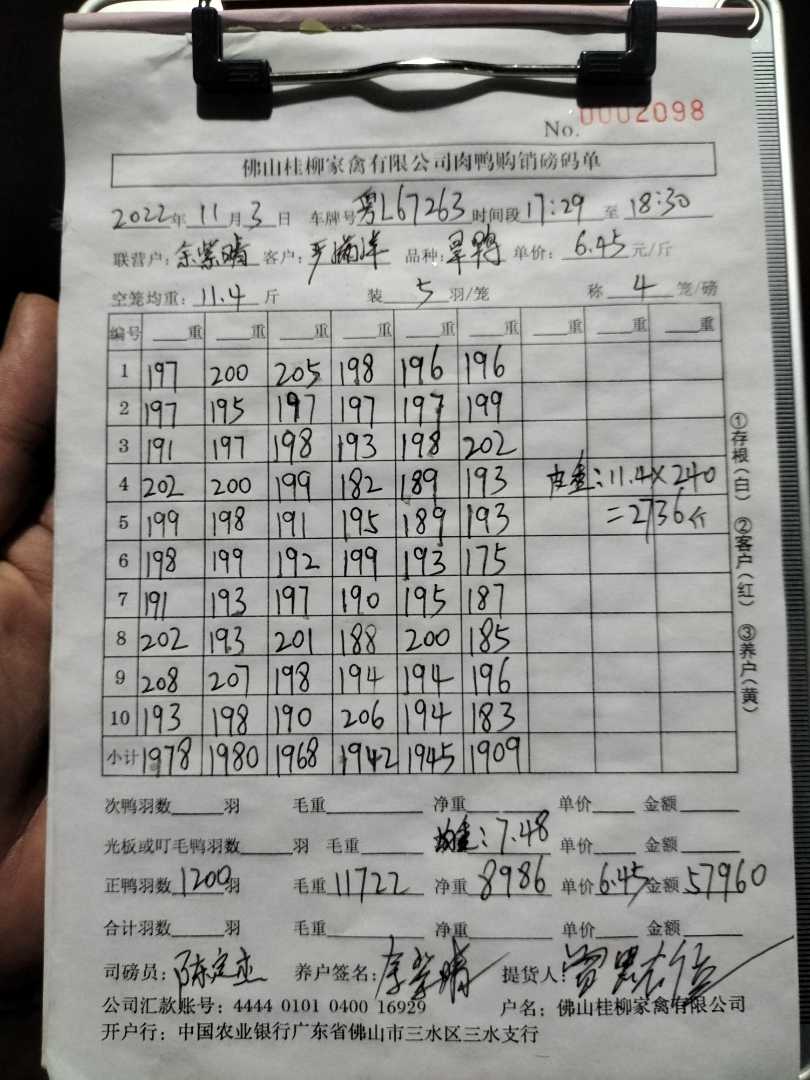 No. 0002098
佛山桂柳家禽有限公司肉鸭购销磅码单
2022年11月3日 车牌号粤L67263时间段17:29至18:30
联营户:余紫晴 客户: 品种:旱鸭 单价:6.45元/斤
空笼均重:11.4斤 装5羽/笼 称4笼/磅
编号 重 重 重 重 重 重 重 重 重
1 197 200 205 198 196 196
2 197 195 197 197 197 199
3 191 197 198 193 198 202
4 202 200 199 182 189 193 皮重:11.4×240
5 199 198 191 195 189 193 =2736斤
6 198 199 192 199 193 175
7 191 193 197 190 195 187
8 202 193 201 188 200 185
9 208 207 198 194 194 196
10 193 198 190 206 194 183
小计 1978 1980 1968 1942 1945 1909
①存根(白) ②客户(红) ③养户(黄)
次鸭羽数 羽 毛重 净重 单价 金额
光板或叮毛鸭羽数 羽 毛重 均重:7.48 单价 金额
正鸭羽数1200羽 毛重11722 净重8986 单价6.45金额57960
合计羽数 羽 毛重 净重 单价 金额
司磅员: 养户签名:余紫晴 提货人:
公司汇款账号:4444 0101 0400 16929 户名:佛山桂柳家禽有限公司
开户行:中国农业银行广东省佛山市三水区三水支行